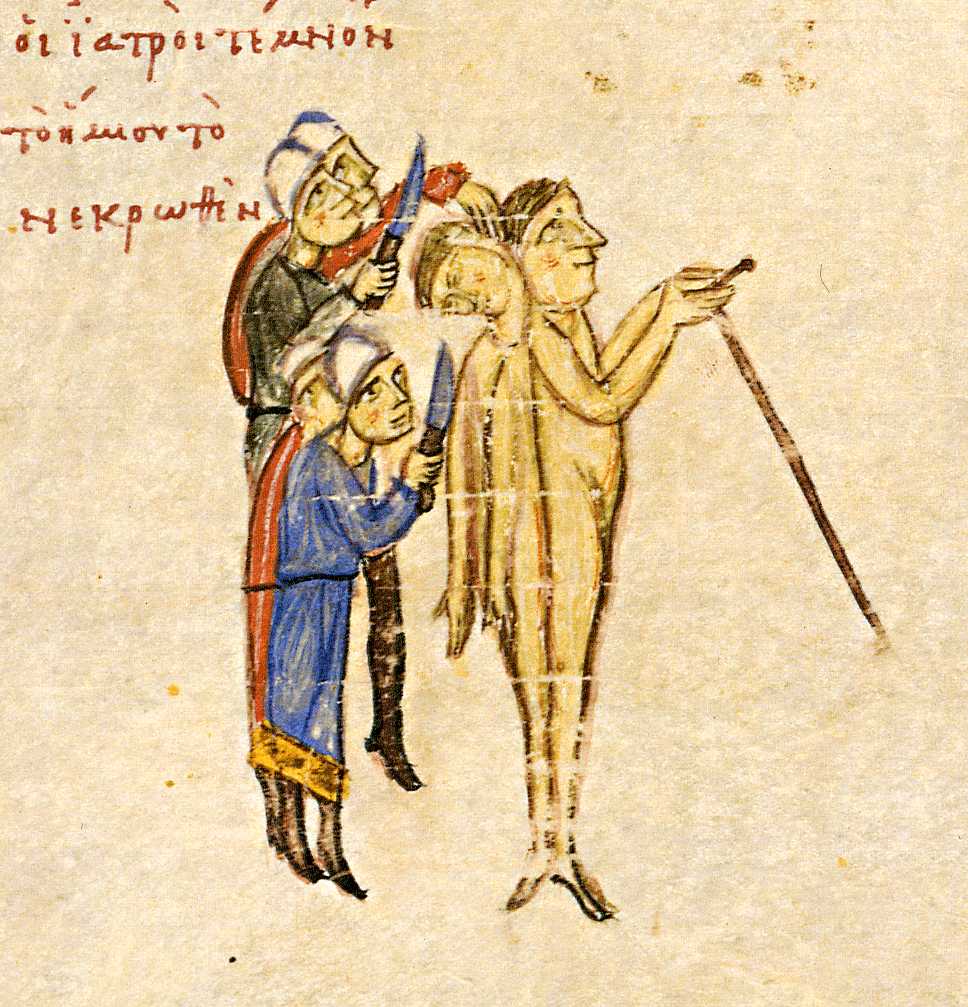 οἱ ϊατροὶ τέμνον
τὸ ἥμισυ τὸ
νεκρωθὲν